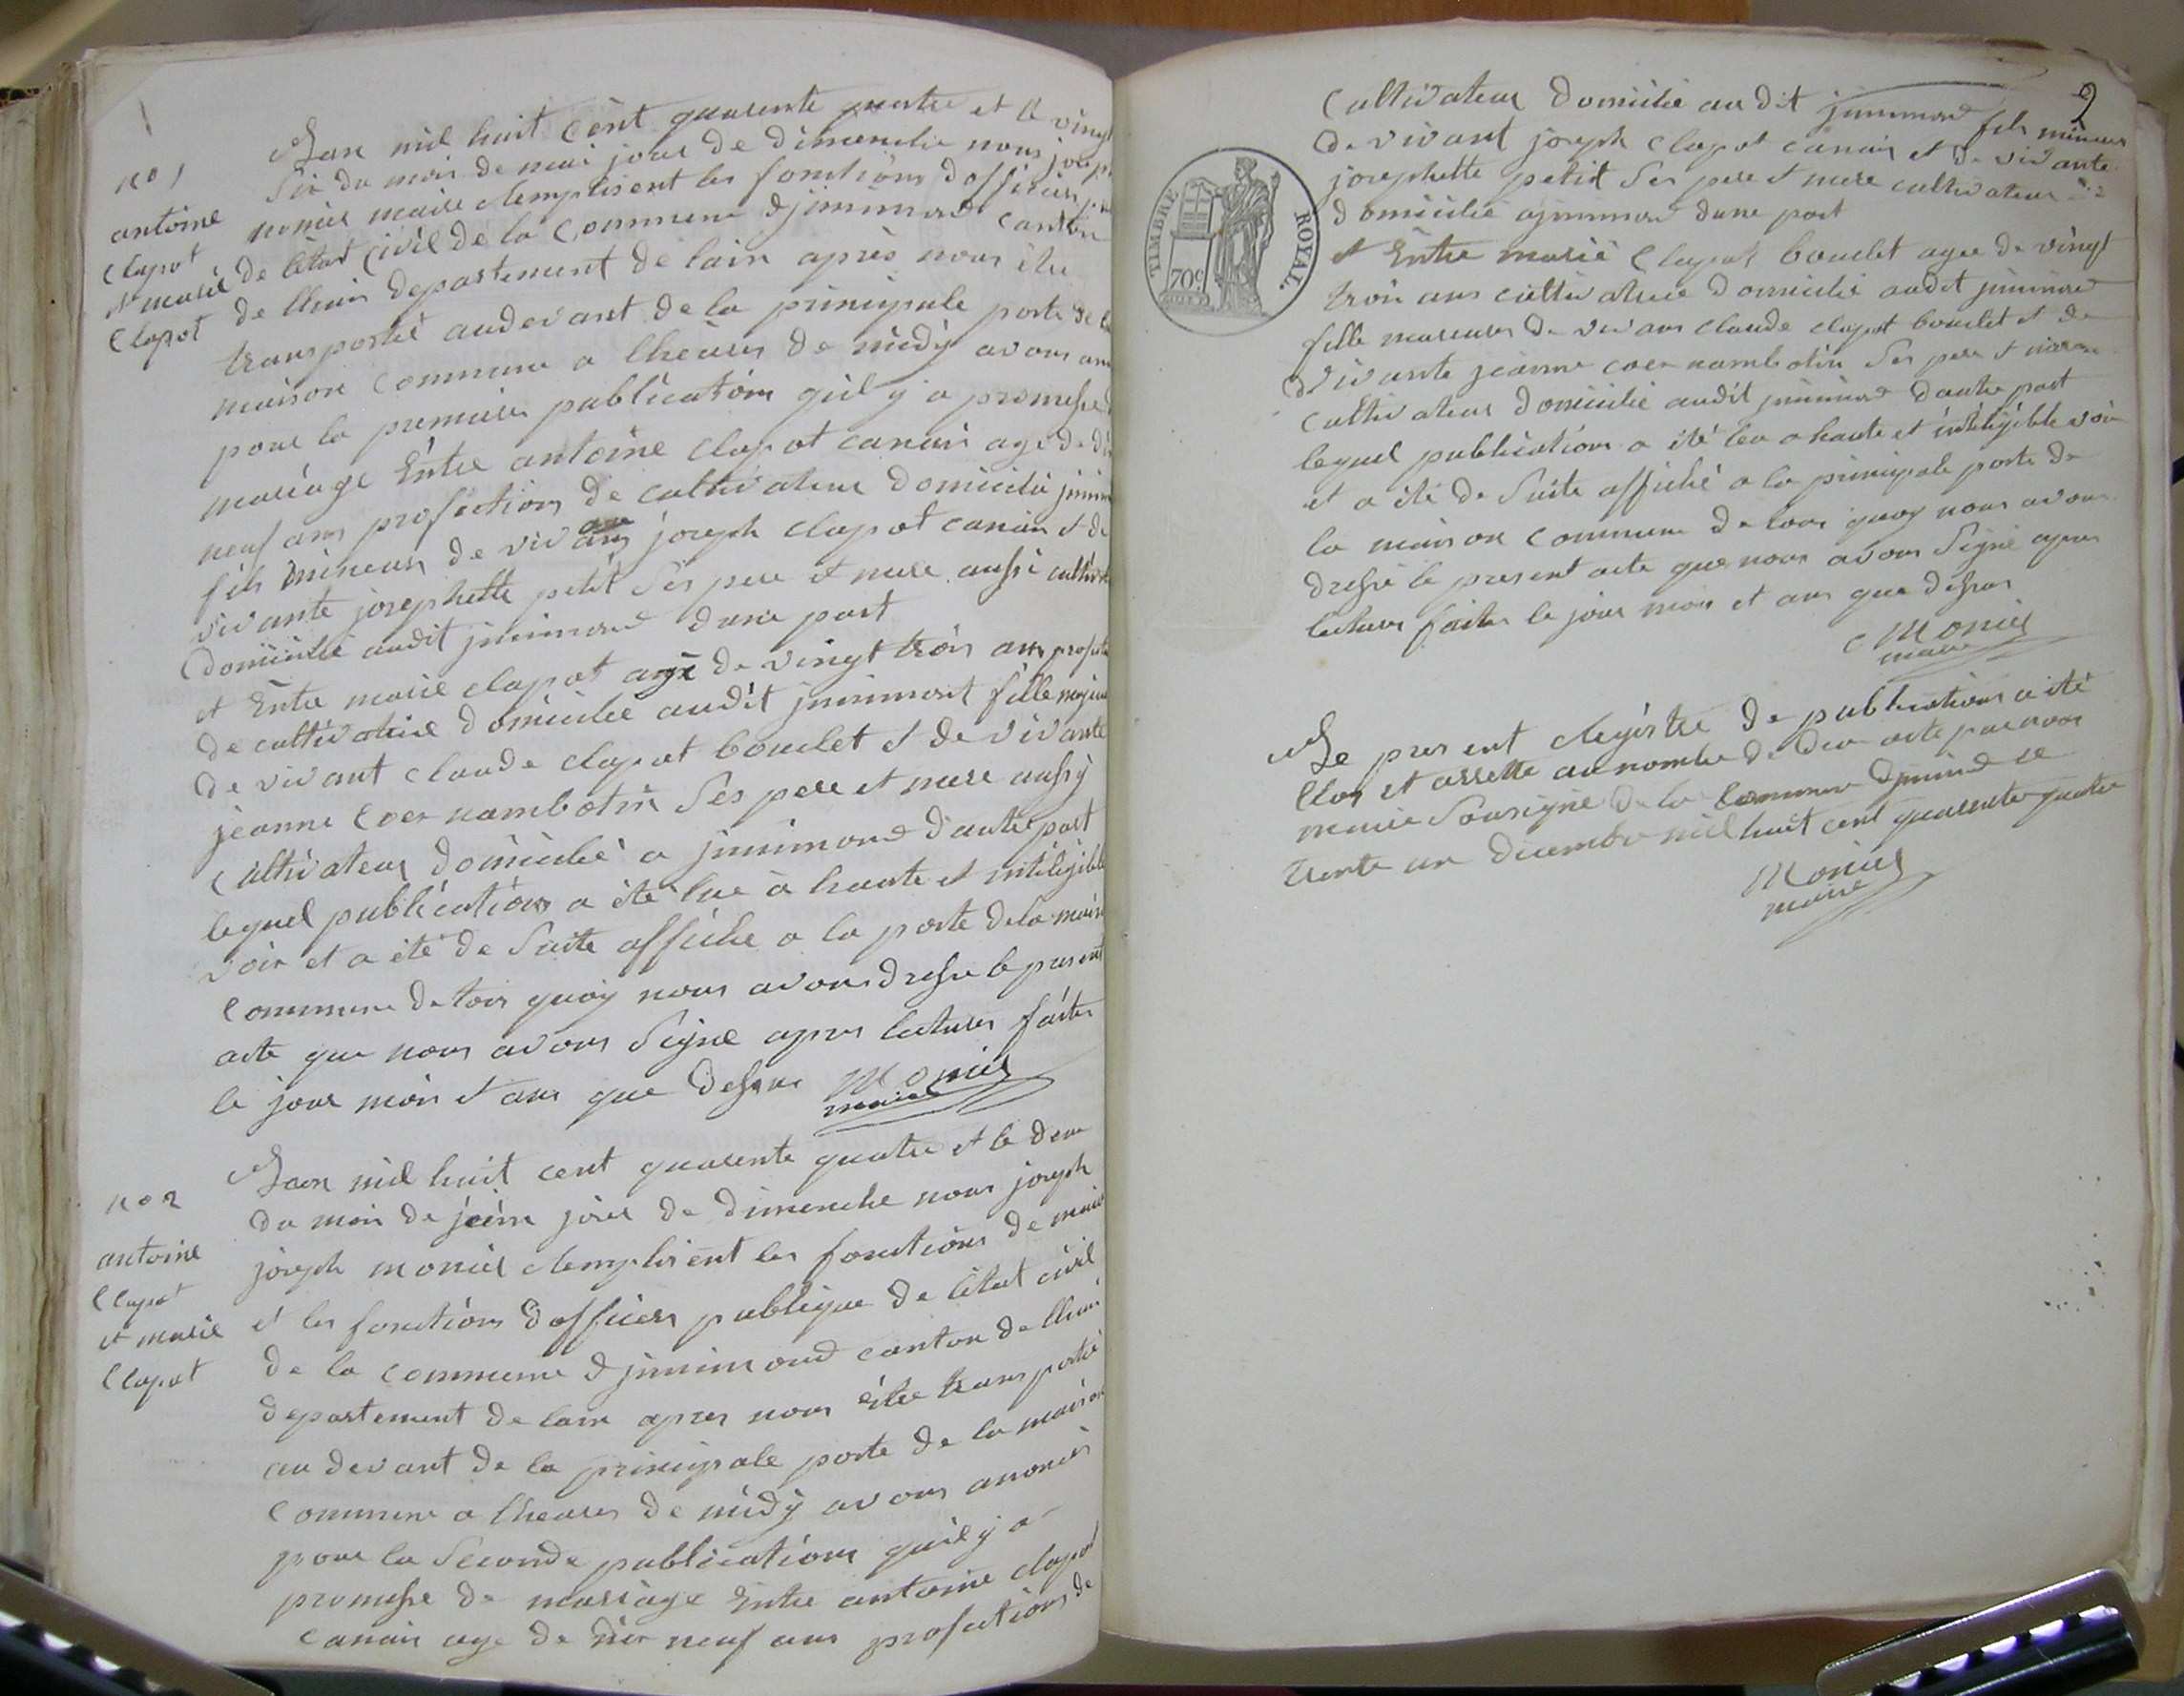 no 1
antoine
Clapot
et marie
Clapot
Lan mil huit Cent quarente quatre et le vingt
Six du mois de mai jour de dimenche nous joseph
monier maire Remplisent les fonctions dofficier
de létat Civil de la Commune djnnimond canton
de lhuis departement de lain après nous être
transportée audevant de la principale porte de la
maison Commune a lheures de midÿ avons
pour la premiere publication quil y a promesse
mariage Entre antoine Clapot canain age de dix
neuf ans profection de cultivateur domicilié
fils mineur de vivant joseph clapot canain et de
vivante josephette petit Ses pere et mere aussi
domicilié audit jnnimond dune part
et Entre marie clapot agé de vingt trois ans
de cultivatrice domicilié audit jnnimont fille
de vivant claude clapot bouclet et de vivante
jeanne Coer nambotin Ses pere et mere aussÿ
Cultivateur domicilié a jnnimond dautre part
lequel publications a été lue à haute et intiligible
voix et a eté de Suite affiche a la porte de la
Commune detour quoÿ nous avons dresse le present
acte que nous avons Signe apres lectures faites
le jour mois et ans que dessus Monier
maire
no 2
antoine
Clapot
et marie
Clapot
Lan mil huit cent quarente quatre et le deux
du mois de juin jour de dimenche nous joseph
joseph monier Remplisent les fonctions de maire
et les fonctions dofficier publique de létat civil
de la commune djnnimond canton de lhuis
departement de lain apres nous être transportée
au devant de la principale porte de la maison
Commune a lheures de midÿ avons anoncés
pour la Seconde publications quil y a
promesse de mariage Entre antoine clapot
canain age de dix neuf ans profections de
2
Cultivateur domicilié audit jnnimond fils mineur
de vivant joseph Clapot canain et de vivante
josephette petit Ses pere et mere cultivateur
domicilié ajnnimond dune part
et Entre marie Clapot bouclet agee de vingt
trois ans cultivatrice domicilié audit jnnimond
fille majeures de vivans claude clapot bouclet et de
vivante jeanne coer nambotin Ses pere et mere
Cultivateur domicilié audit jnnimond dautre part
lequel publications a été leu a haute et intiligible voix
et a été de Suite affiché a la principale porte de
la maison Commune de tour quoy nous avons
dressé le present acte que nous avons Signé apres
lectures faites le jour mois et ans que dessus
Monier
maire
Le present Registre de publications a été
Clos et arrette au nombre de deux acte par nous
maire Sousigné de la Commune djnnimond ce
trente un decembre mil huit cent quarente quatre
Monier
maire
TIMBRE ROYAL.
70c